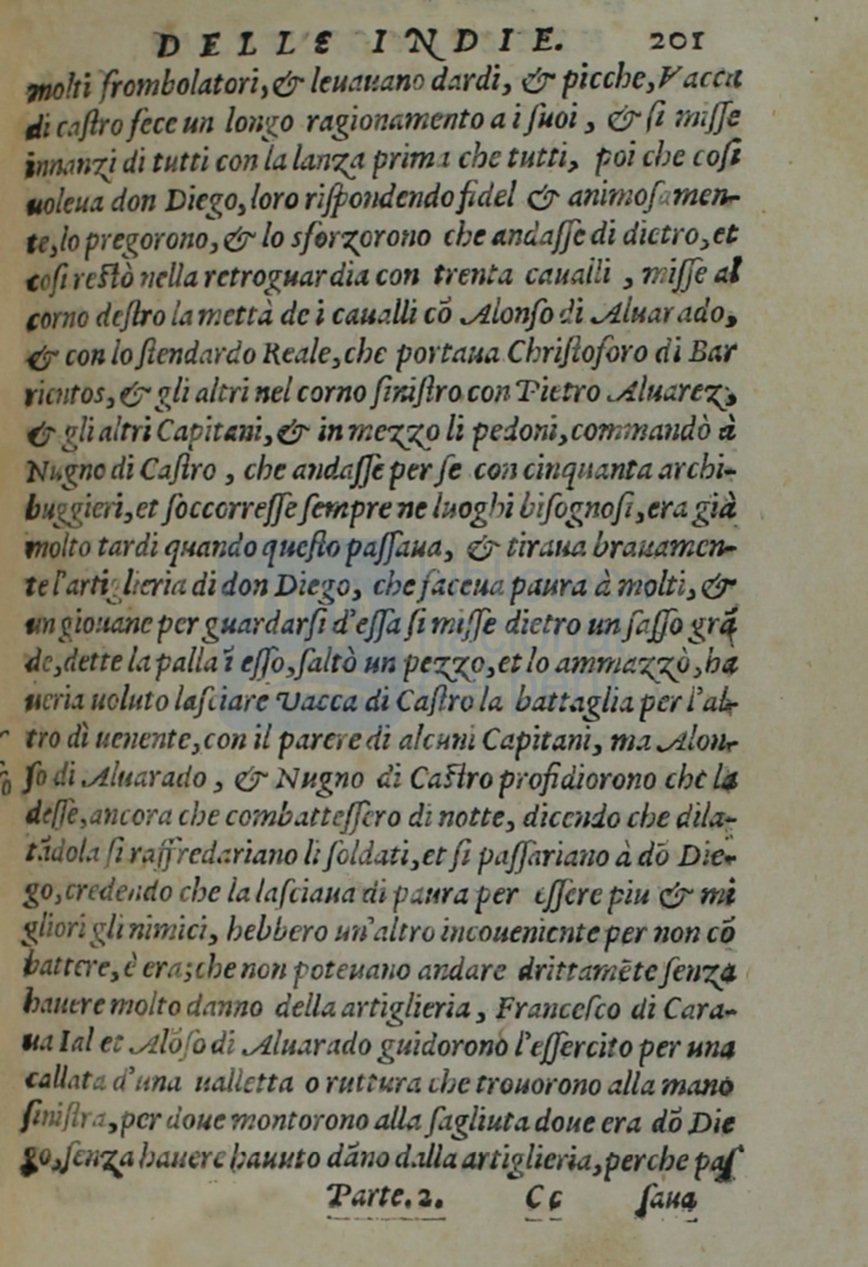 DELLE INDIE. 201
molti frombolatori, & leuauano dardi, & picche, Vacca
di caſtro fece un longo ragionamento a i ſuoi, & ſi miſſe
innanzi di tutti con la lanza prima che tutti, poi che coſi
uoleua don Diego, loro riſpondendo fidel & animoſamen-
te, lo pregorono, & lo sforzorono che andaſſe di dietro, et
coſi reſtò nella retroguardia con trenta caualli, miſſe al
corno deſtro la mettà de i caualli cõ Alonſo di Aluarado,
& con lo ſtendardo Reale, che portaua Chriſtoforo di Bar
rientos, & gli altri nel corno ſiniſtro con Pietro Aluarez,
& gli altri Capitani, & in mezzo li pedoni, commandò à
Nugno di Caſtro, che andaſſe per ſe con cinquanta archi-
buggieri, et ſoccorreſſe ſempre ne luoghi biſognoſi, era già
molto tardi quando queſto paſſaua, & tiraua brauamen-
te l'artiglieria di don Diego, che faceua paura à molti, &
un giouane per guardarſi d'eſſa ſi miſſe dietro un ſaſſo grã
de, dette la palla ĩ eſſo, ſaltò un pezzo, et lo ammazzò, ha
ueria uoluto laſciare Vacca di Caſtro la battaglia per l'al-
tro dì uenente, con il parere di alcuni Capitani, ma Alon-
ſo di Aluarado, & Nugno di Caſtro profidiorono che la
deſſe, ancora che combatteſſero di notte, dicendo che dila-
tãdola ſi raffredariano li ſoldati, et ſi paſſariano à dõ Die-
go, credendo che la laſciaua di paura per eſſere piu & mi
gliori gli nimici, hebbero un'altro incoueniente per non cõ
battere, è era; che non poteuano andare drittamẽte ſenza
hauere molto danno della artiglieria, Franceſco di Cara-
ua Ial et Alõſo di Aluarado guidorono l'eſſercito per una
callata d'una ualletta o ruttura che trouorono alla mano
ſiniſtra, per doue montorono alla ſagliuta doue era dõ Die
go, ſenza hauere hauuto dãno dalla artiglieria, perche paſ
Parte. 2. Cc ſaua